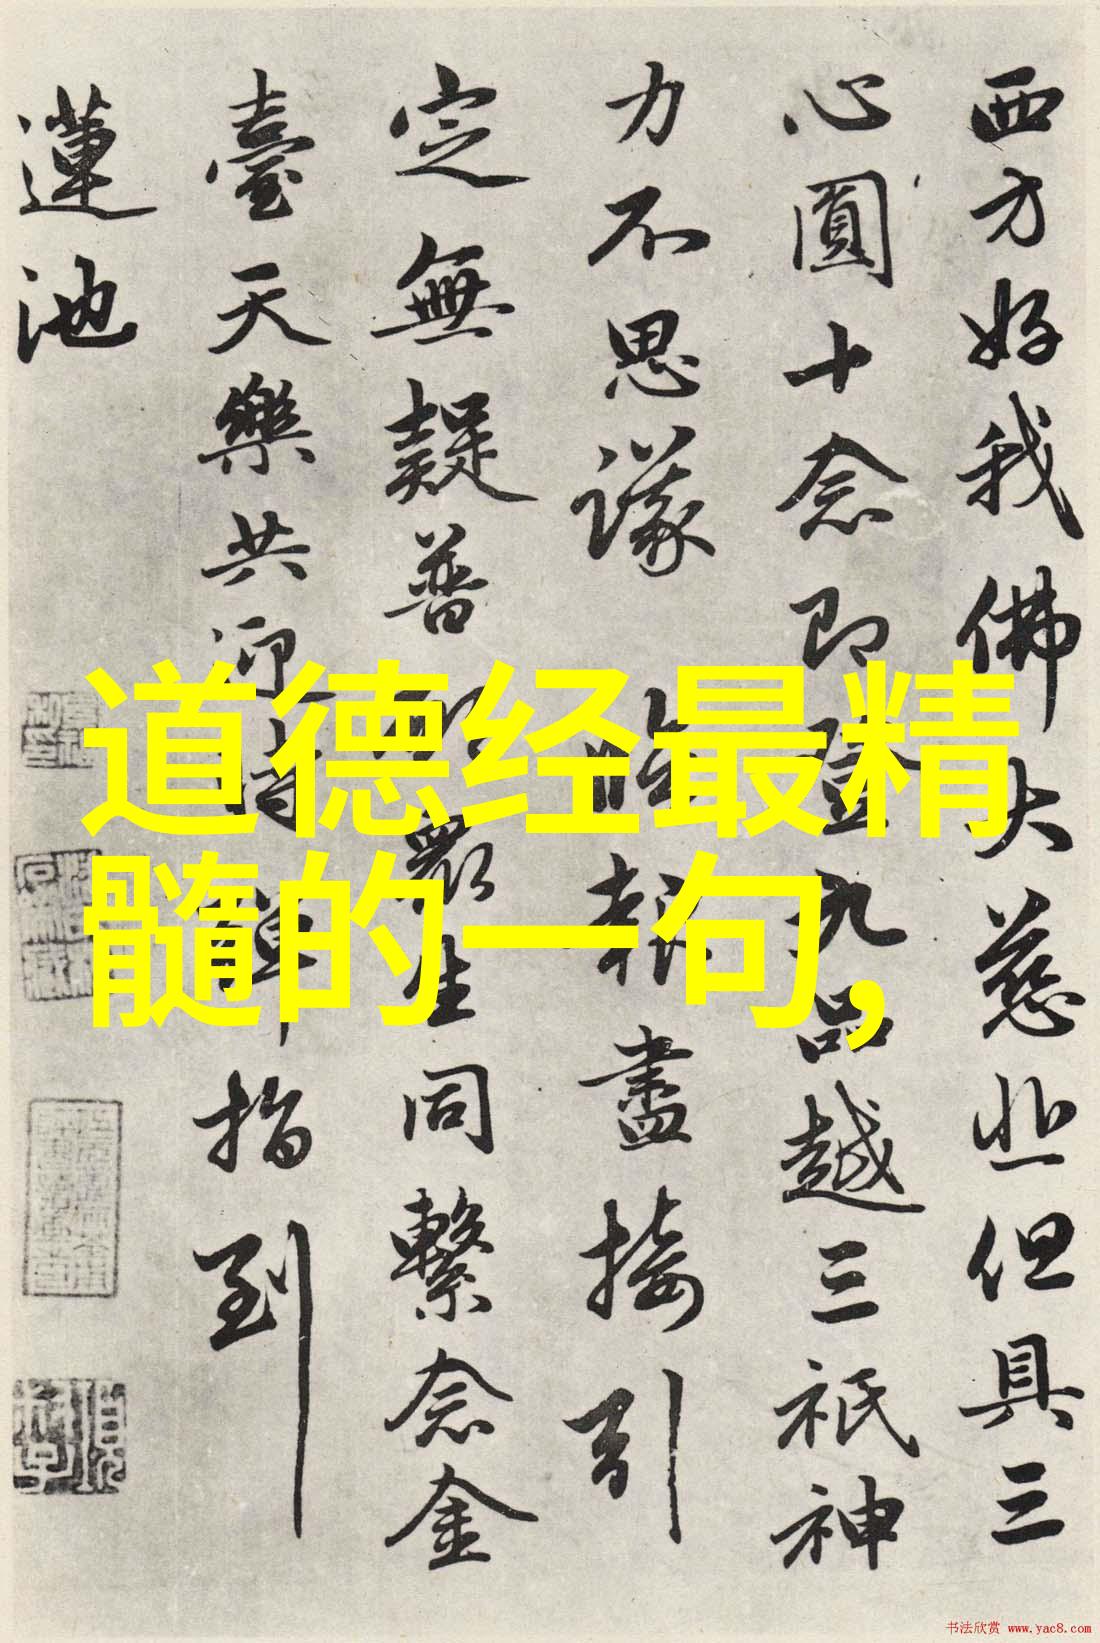 西方好我佛大慈悲但具三
心圓十念即證九品越三祇神
力不思議臨報盡接引
定無疑普眾生同繫念金
臺天樂共迎時彈指到
蓮池
道德经最精
髓的一句,
书法欣赏 www.yac8.com